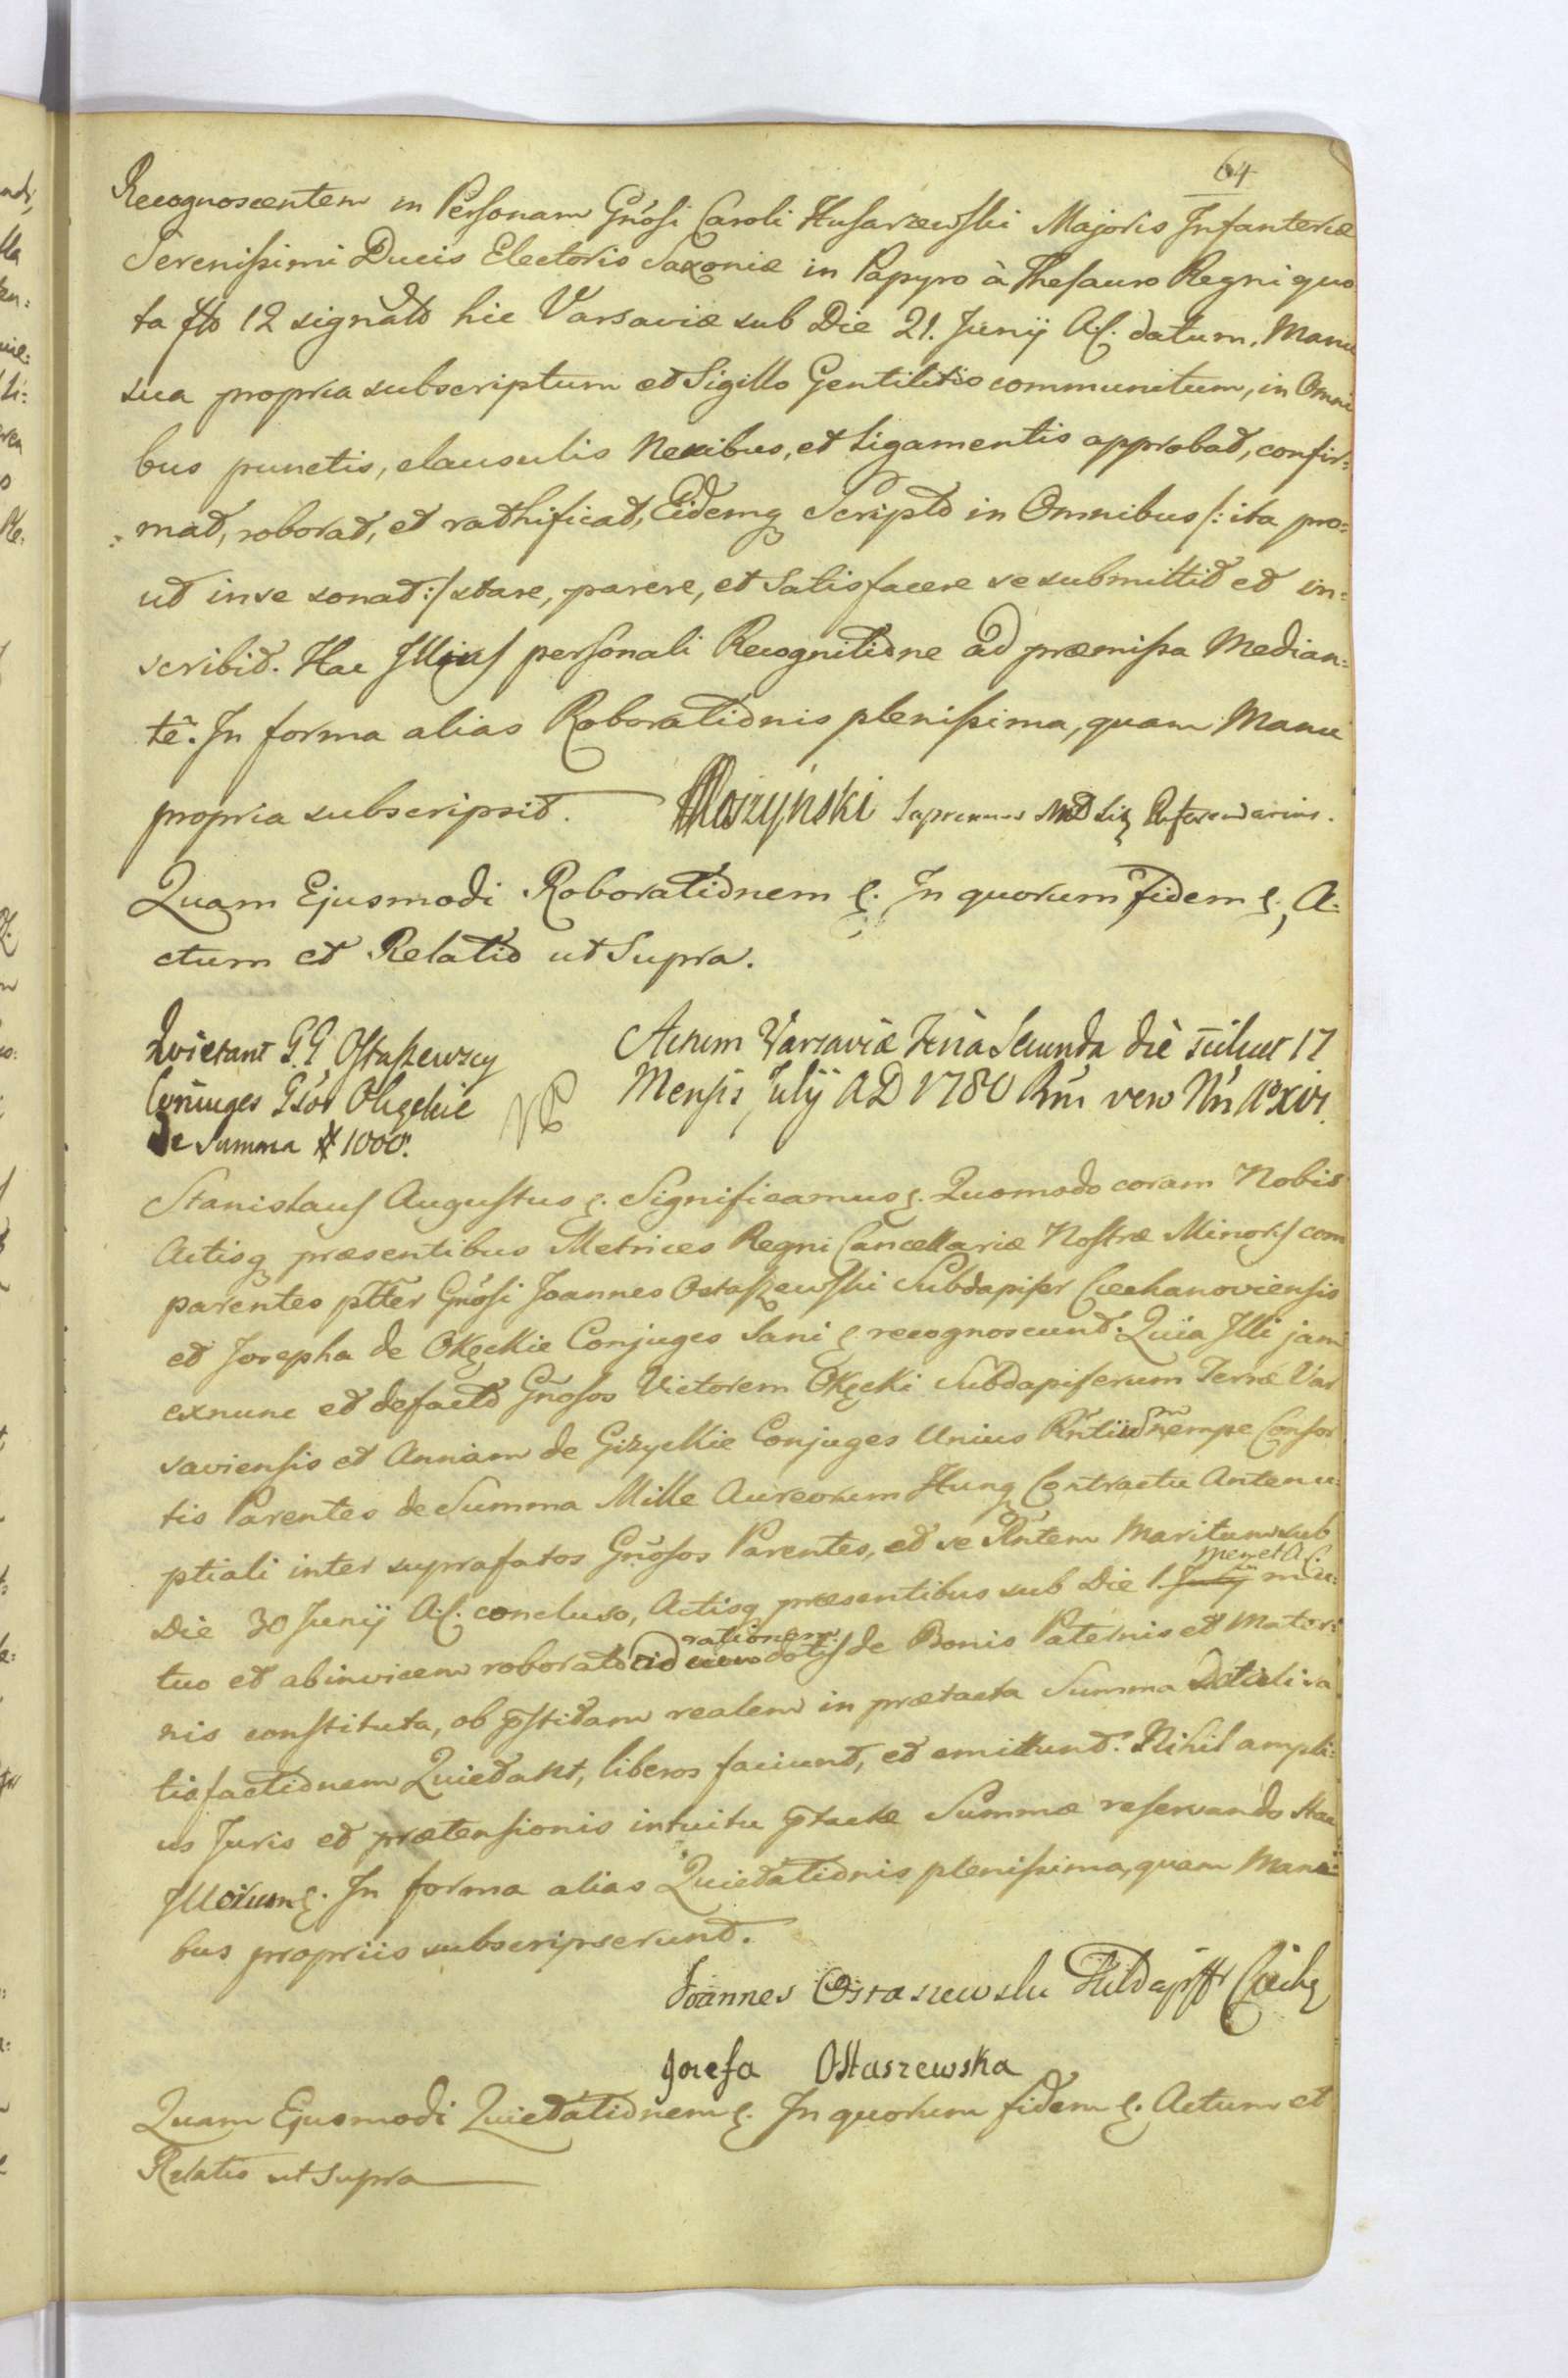 64
Recognoscentem in Personam Gnosi Caroli Husarzewski Majoris Infanteriæ
Serenissimi Ducis Electoris Saxoniæ in Papyro à Thesauro Regni quo
ta fto 12 signato hic Varsaviæ sub Die 21. Junij A.C. datum, Manu
sua propria subscriptum et Sigillo Gentilitio communitum, in Omni
bus punctis, clausulis Nexibus, et Ligamentis approbat, confir=
=mat, roborat, et rathificat, Eidemq Scripto in Omnibus /: ita pro=
ut in se sonat :/ stare, parere, et Satisfacere se submittit et in=
scribit. Hac Illius personali Recognitione ad præmissa Median=
te. In forma alias Roborationis plenissima, quam Manu
propria subscripsit. Moszyński Supremus MDLit Referendarius.
Quam Ejusmodi Roborationem &. In quorum fidem &, A=
ctum et Relatio ut Supra.
Quietant G.G. Ostaszewscy
Conjuges Gsos Okęckie
de Summa # 1000.
Actum Varsaviæ Feria Secunda die scilicet 17
Mensis Julij AD 1780 Rni vero Nri Ao XVI.
Stanislaus Augustus &. Significamus &. Quomodo coram Nobis
Actisq præsentibus Metrices Regni Cancellariæ Nostræ Minoris com
parentes ptter Gnosi Joannes Ostaszewski Subdapifer Ciechanoviensis
et Josepha de Okęckie Conjuges Sani & recognoscunt. Quia Illi jam
exnunc et defacto Gnosos Victorem Okęcki Subdapiferum Terræ Var
saviensis et Annam de Giżyckie Conjuges Unius Rntium nempe Consor
tis Parentes de Summa Mille Aureorum Hung Contractu Antenu=
ptiali inter suprafatos Gnosos Parentes, et se Rntem Maritum sub
Die 30 Junij A.C. concluso, Actisq præsentibus sub Die 1. Julij m et A.C. mu=
tuo et abinvicem roborato ad rationem dotis de Bonis Paternis et Mater=
nis constituta, ob pstitam realem in prætacta Summa Dotali sa
tisfactionem Quietant, liberos faciunt, et emittunt. Nihil ampli=
us Juris et prætensionis intuitu ptactæ Summæ reservando Hac
Illorum &. In forma alias Quietationis plenissima, quam Mani=
bus propriis subscripserunt.
Joannes Ostaszewski Subdapiffr Ciech
Jozefa Ostaszewska
Quam Ejusmodi Quietationem &. In quorum fidem &. Actum et
Relatio ut Supra